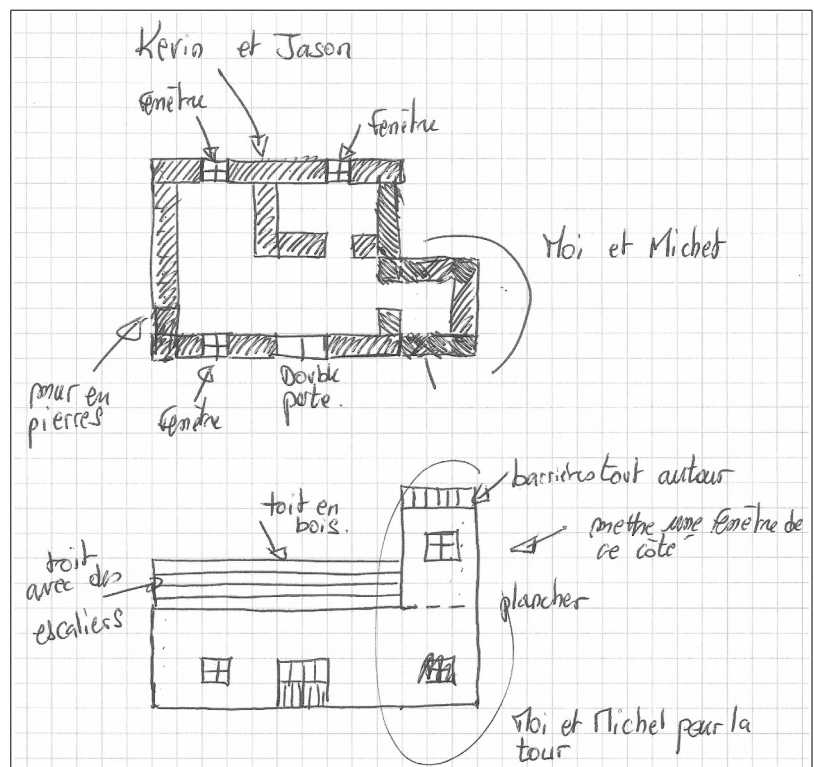 Kevin et Jason
fenêtre
Fenêtre
Moi et Michel
mur en
pierres
fenêtre
Double
porte.
barrières tout autour
toit en
bois.
mettre une fenêtre de
ce côté
toit
avec des
escaliers
plancher
Moi et Michel pour la
tour